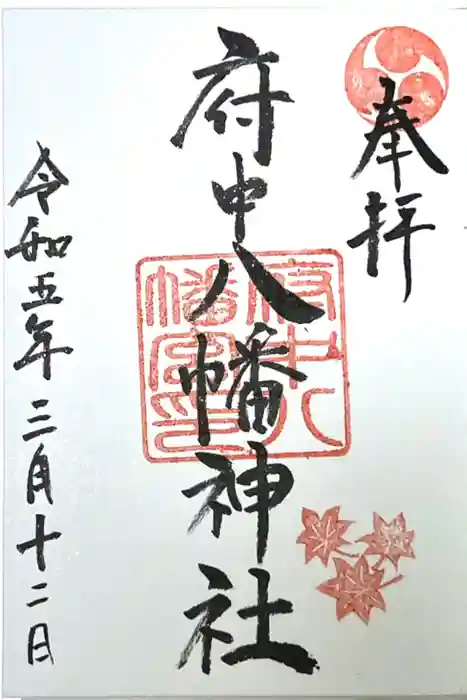 奉拝
府中八幡神社
府中八幡宮印
令和五年三月十二日